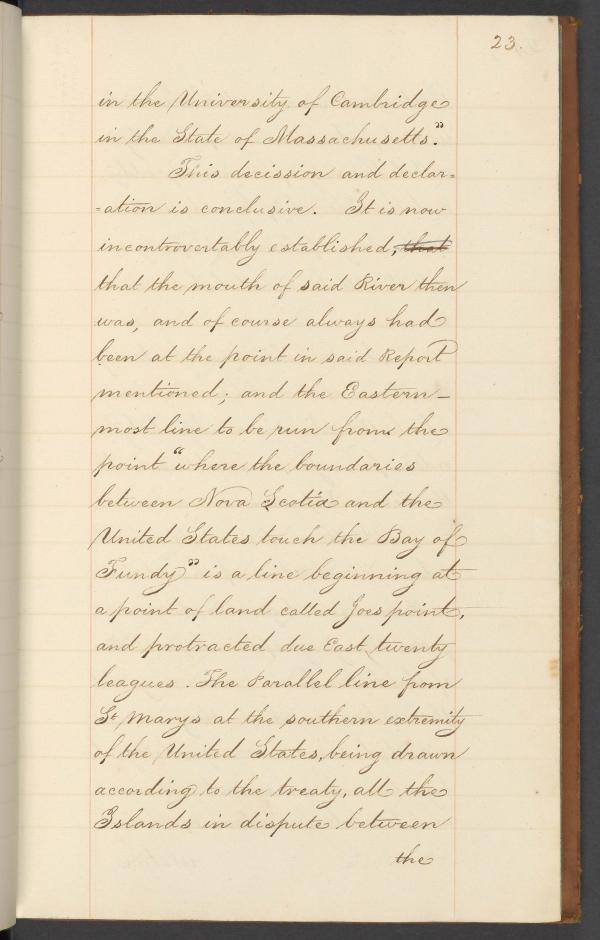 23.
in the University of Cambridge
in the State of Massachusetts."
This decission and declar=
=ation is conclusive. It is now
incontrovertably established, that
that the mouth of said River then
was, and of course always had
been at the point in said Report
mentioned; and the Eastern-
most line to be run from the
point "where the boundaries
between Nova Scotia and the
United States touch the Bay of
Fundy" is a line beginning at
a point of land called Joes point,
and protracted due East twenty
leagues. The Parallel line from
St Marys at the southern extremity
of the United States, being drawn
according to the treaty, all the
Islands in dispute between
the